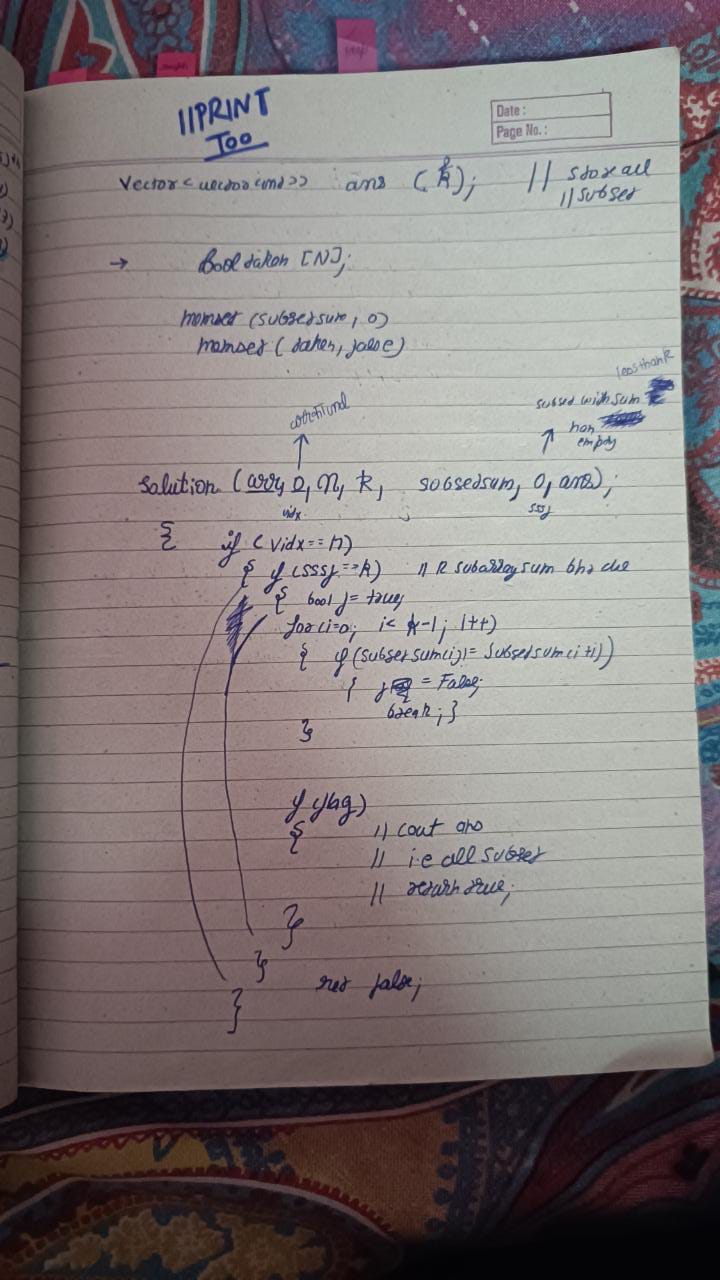 //PRINT
Too
Date :
Page No. :
Vector<vector<int>> ans (k); // store all
// subset
→ Bool taken [N];
memset (subsetsum, 0)
memset (taken, false)
less than k
subset with sum
non
empty
solution (arr, 0, n, k, subsetsum, 0, ans);
vidx
sssf
{ if (vidx==n)
{ if (sssf==k) // k subarray sum
{ bool f= true;
for (i=0; i< k-1; i++)
{ if (subsetsum(i)!= subsetsum(i+1))
{ f = False;
break; }
}
if (flag)
{ // cout ans
// i.e all subset
// return true;
}
}
ret false;
}